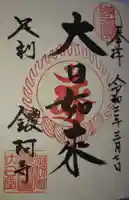 奉拝
令和二年三月七日
大日如来
足利
鑁阿寺